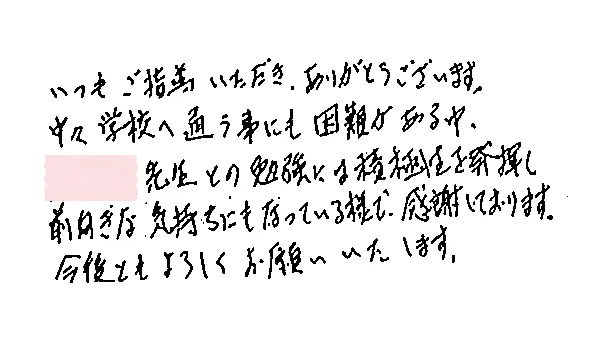 いつもご指導いただき、ありがとうございます。
中々学校へ通う事にも困難がある中、
先生との勉強には積極性を発揮し
前向きな気持ちにもなっている様で、感謝しております。
今後ともよろしくお願いいたします。